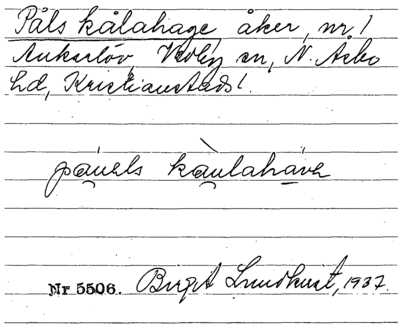 Påls kålahage, åker, nr 1
Ankarlöv, Vedby sn, N. Åsbo
hd, Kristianstads l.
påuels kaulahäva
Nr 5506. Birgit Lundkvist, 1937.